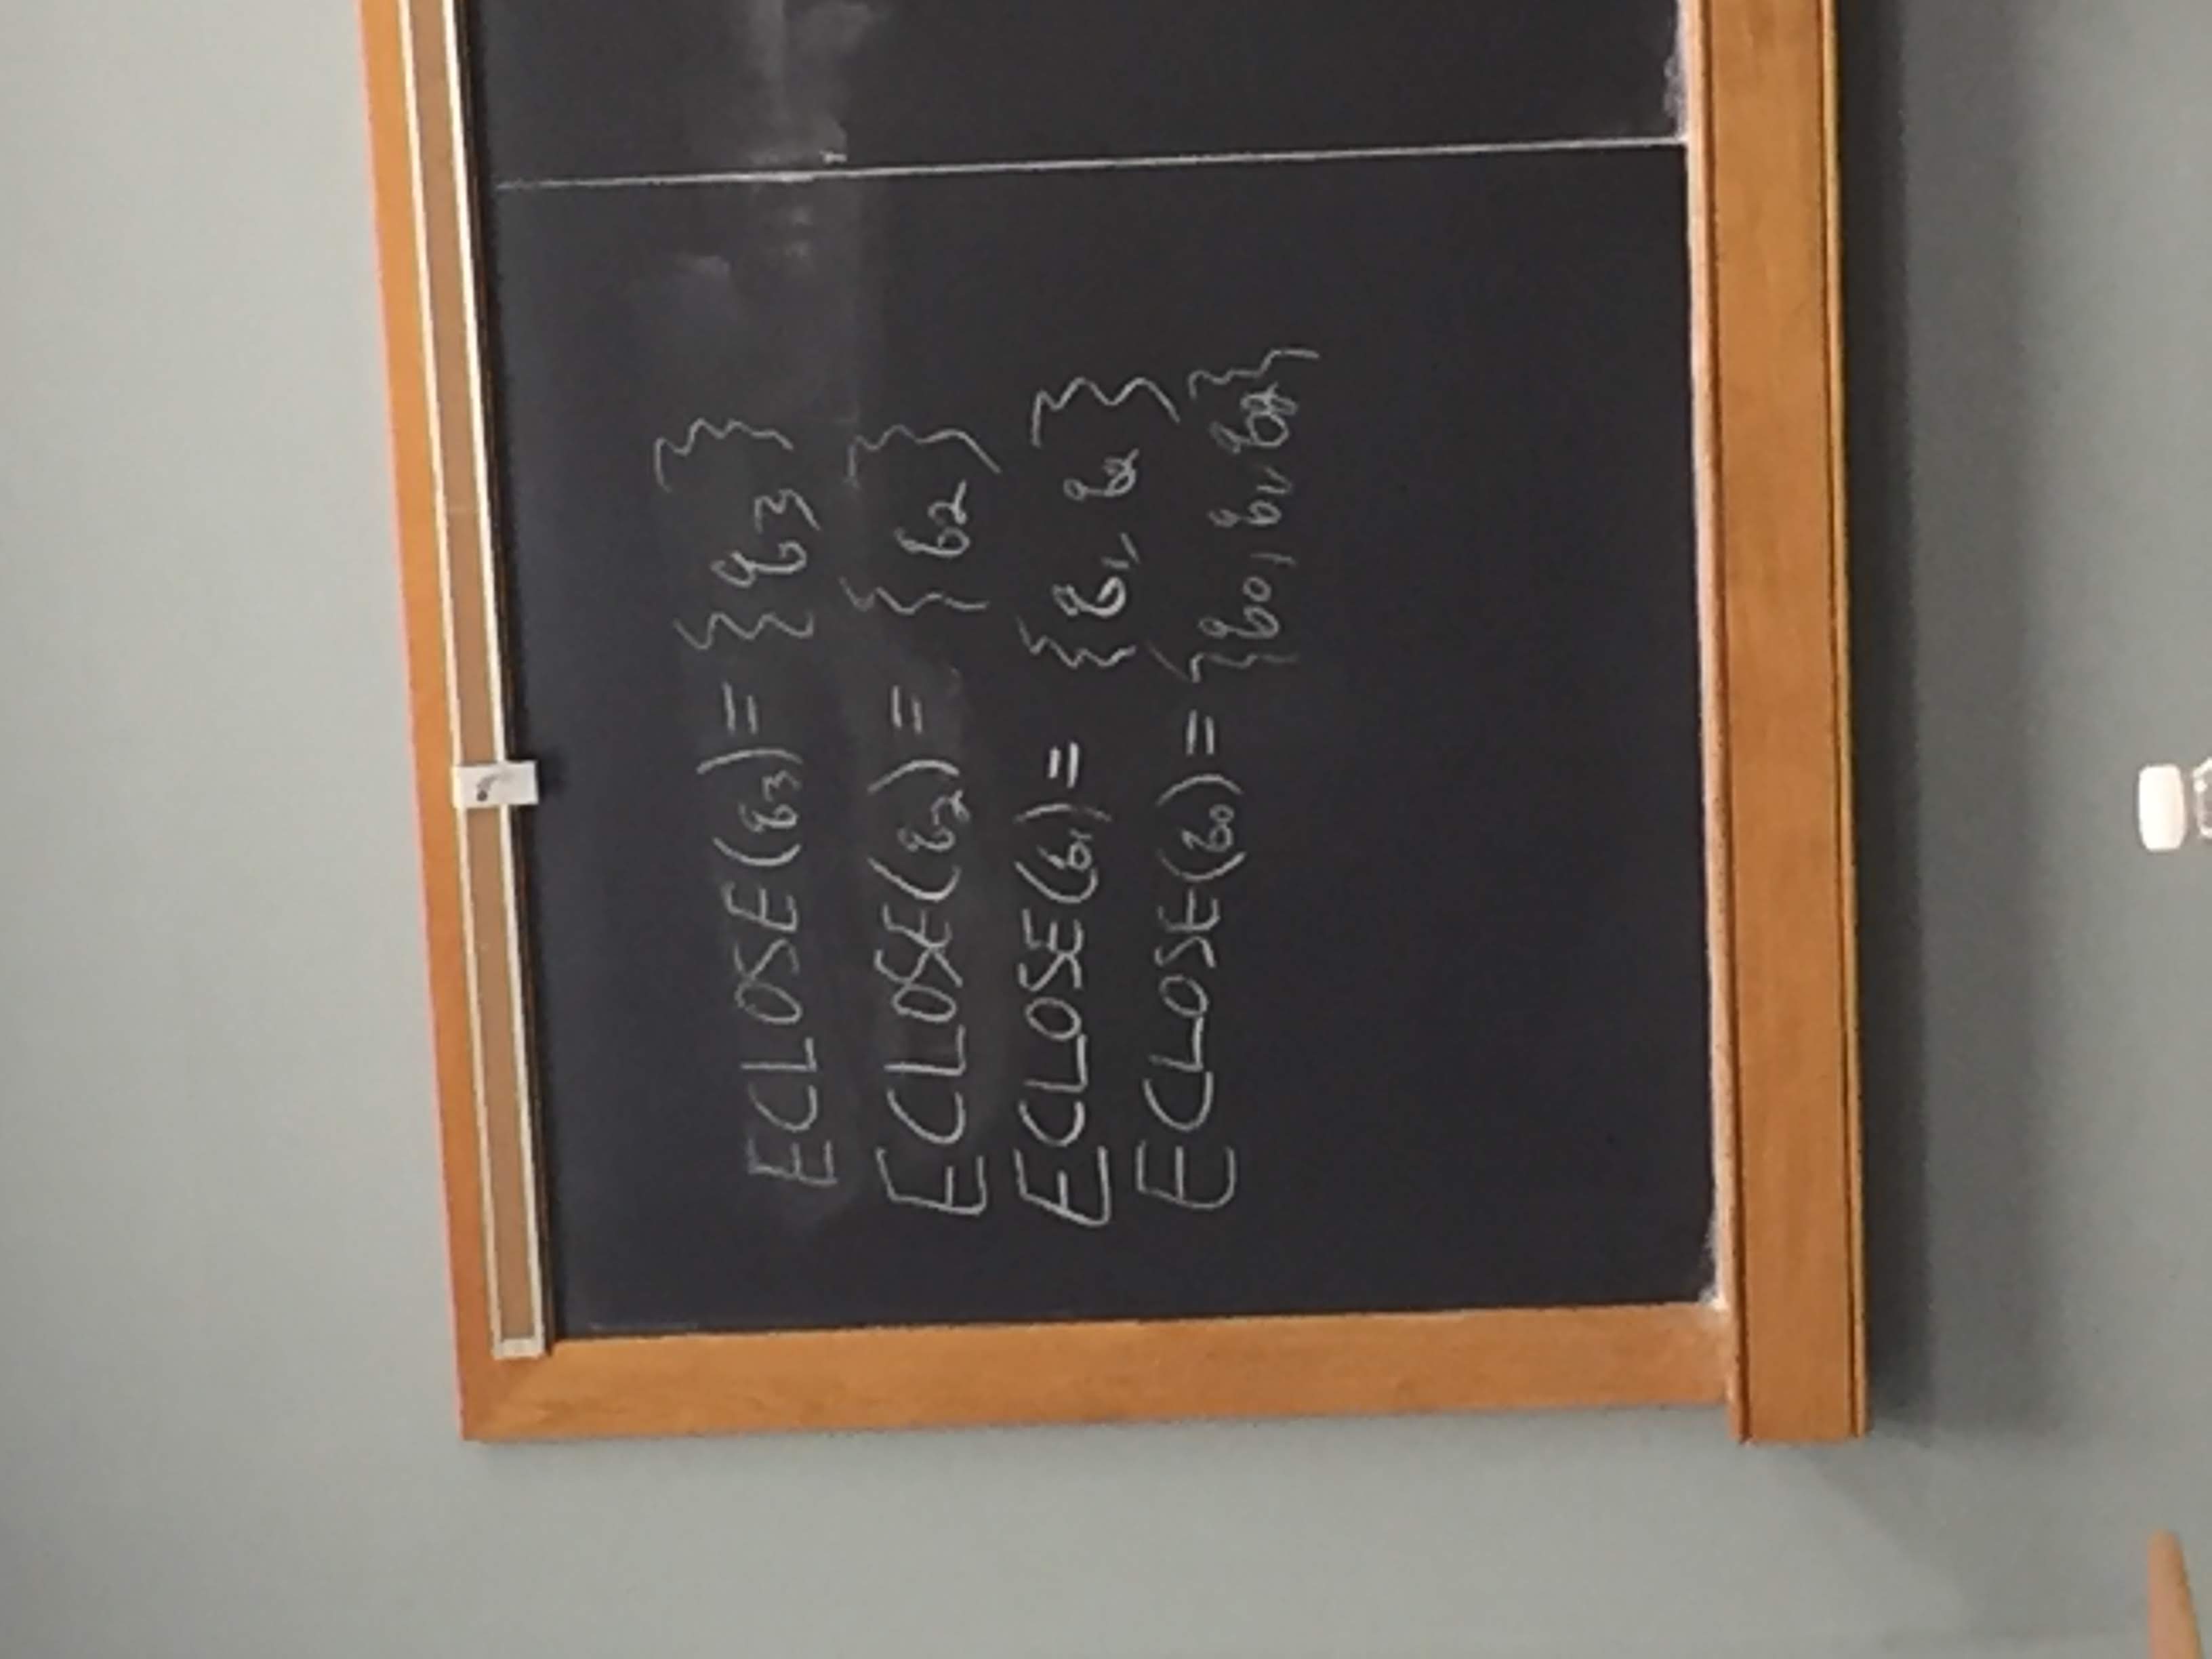 ECLOSE(q₃) = {q₃}
ECLOSE(q₂) = {q₂}
ECLOSE(q₁) = {q₁, q₂}
ECLOSE(q₀) = {q₀, q₁, q₂}